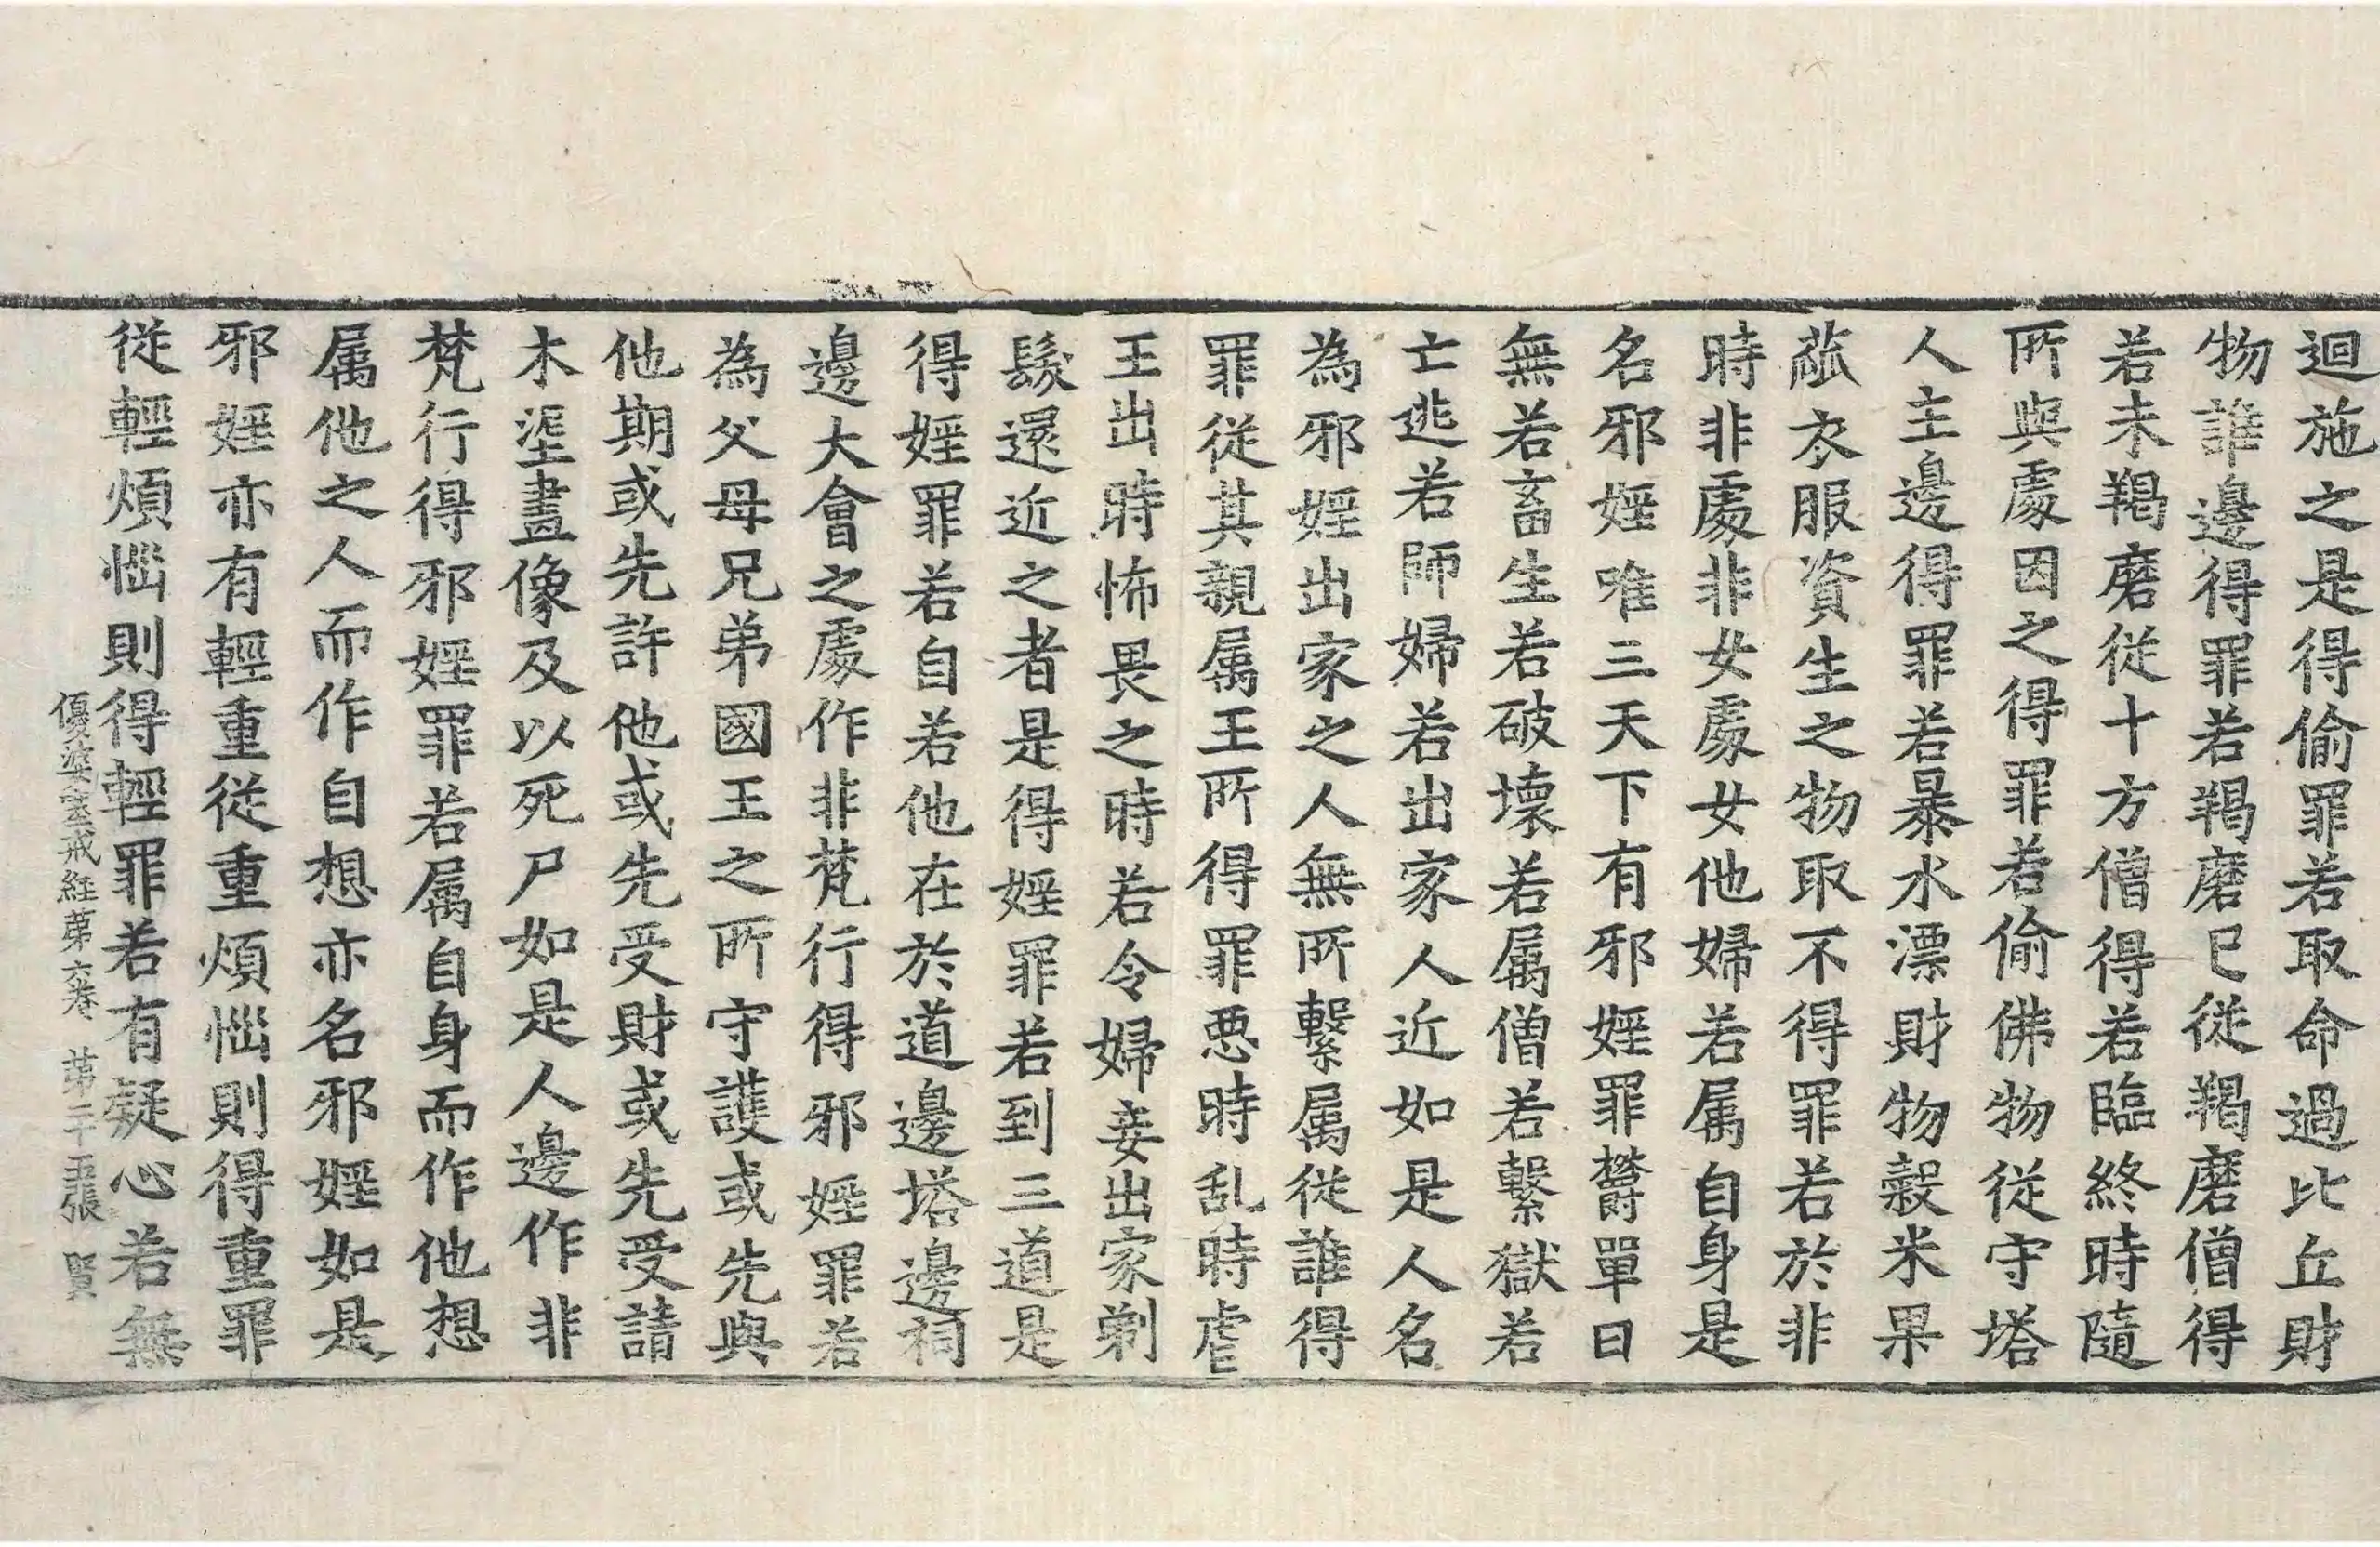 迴施之是得偷罪若取命過比丘財
物誰邊得罪若羯磨已從羯磨僧得
若未羯磨從十方僧得若臨終時隨
所與處因之得罪若偷佛物從守塔
人主邊得罪若暴水漂財物穀米果
蓏衣服資生之物取不得罪若於非
時非處非女處女他婦若属自身是
名邪婬唯三天下有邪婬罪欝單曰
無若畜生若破壞若属僧若繫獄若
亡逃若師婦若出家人近如是人名
為邪婬出家之人無所繫属從誰得
罪從其親属王所得罪惡時乱時虐
王出時怖畏之時若令婦妾出家剃
髮還近之者是得婬罪若到三道是
得婬罪若自若他在於道邊塔邊祠
邊大會之處作非梵行得邪婬罪若
為父母兄弟國王之所守護或先與
他期或先許他或先受財或先受請
木埿畫像及以死尸如是人邊作非
梵行得邪婬罪若属自身而作他想
属他之人而作自想亦名邪婬如是
邪婬亦有輕重從重煩惱則得重罪
從輕煩惱則得輕罪若有疑心若無
優婆塞戒經第六卷 第二十五張 賢